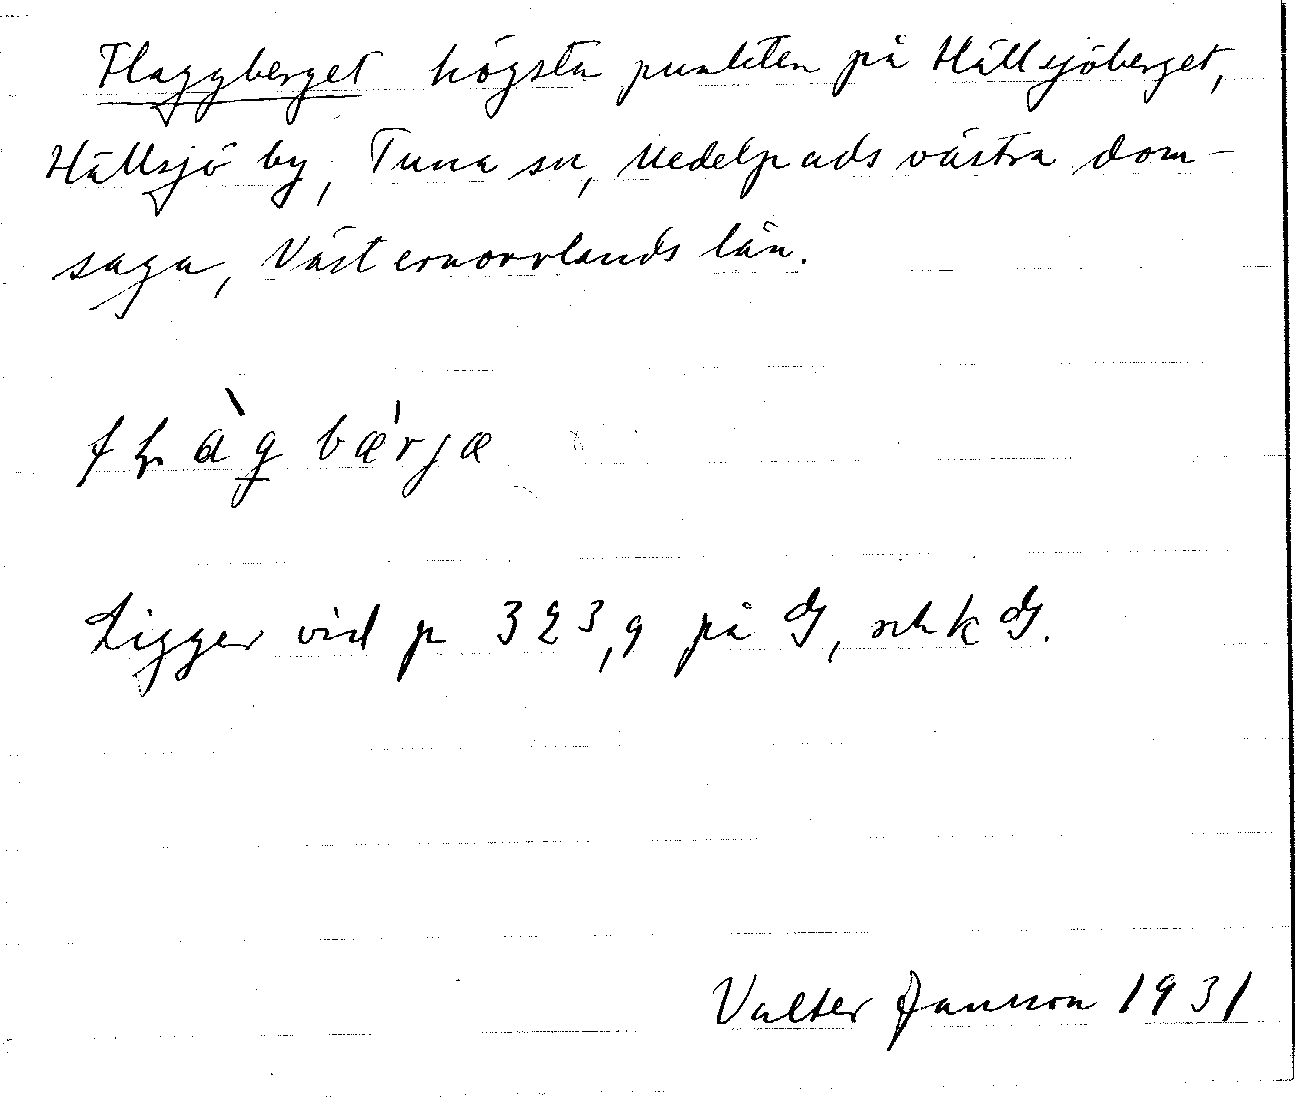 Flaggberget högsta punkten på Hällsjöberget,
Hällsjö by, Tuna sn, Medelpads västra dom-
saga, Västernorrlands län.
Ligger vid p 323,9 på G, och k G.
Valter Jansson 1931